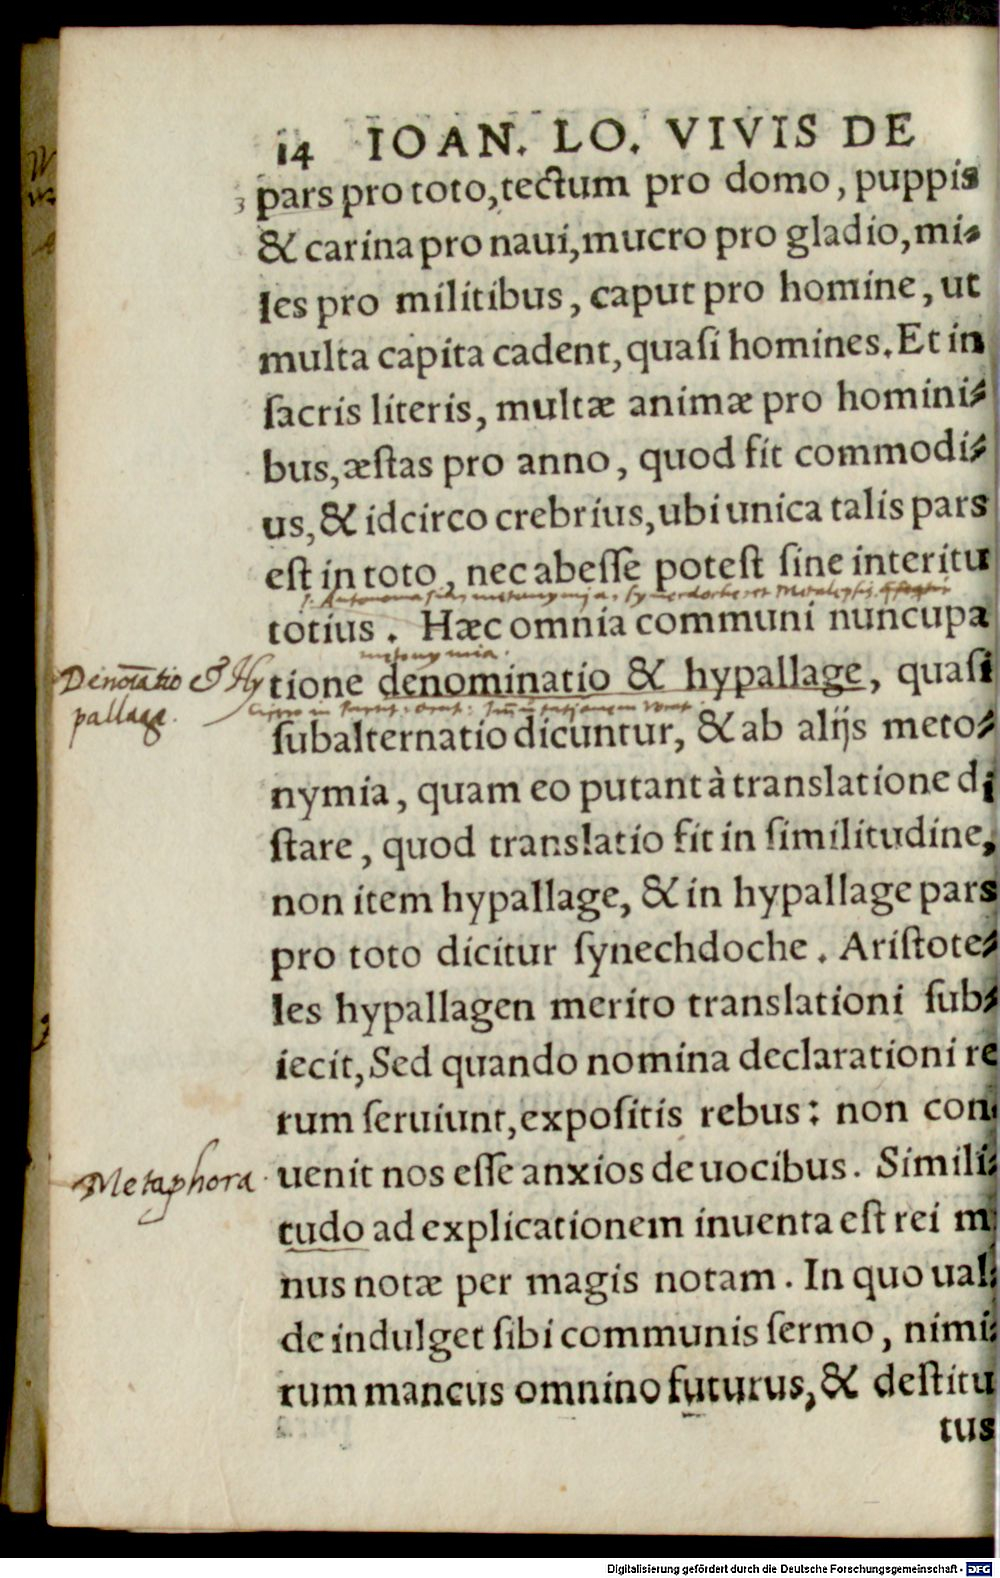 14 IOAN. LO. VIVIS DE
3 pars pro toto, tectum pro domo, puppis
& carina pro naui, mucro pro gladio, mi⸗
les pro militibus, caput pro homine, ut
multa capita cadent, quaſi homines. Et in
ſacris literis, multæ animæ pro homini⸗
bus, æſtas pro anno, quod fit commodi⸗
us, & idcirco crebrius, ubi unica talis pars
eſt in toto, nec abeſſe poteſt ſine interitu
metonymia, synecdoche et Metalepsis
totius. Hæc omnia communi nuncupa
metonymia.
Denotatio & Hy
pallage.
tione denominatio & hypallage, quaſi
Cicero in
ſubalternatio dicuntur, & ab alijs meto⸗
nymia, quam eo putant à translatione di
ſtare, quod translatio fit in ſimilitudine,
non item hypallage, & in hypallage pars
pro toto dicitur ſynechdoche. Ariſtote⸗
les hypallagen merito translationi ſub⸗
iecit, Sed quando nomina declarationi re
rum ſeruiunt, expoſitis rebus: non con⸗
Metaphora
uenit nos eſſe anxios de uocibus. Simili⸗
tudo ad explicationem inuenta eſt rei mi
nus notæ per magis notam. In quo ual⸗
de indulget ſibi communis ſermo, nimi⸗
rum mancus omnino futurus, & deſtitu
tus
Digitalisierung gefördert durch die Deutsche Forschungsgemeinschaft - DFG